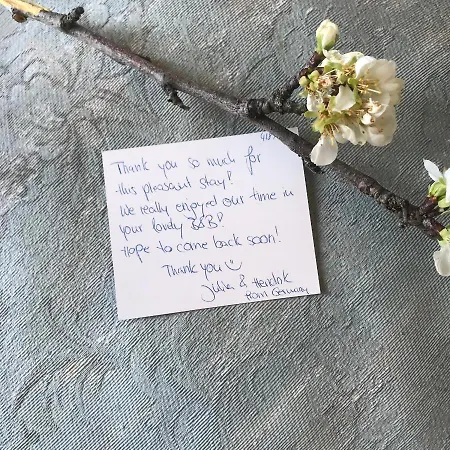 Thank you so much for
this pleasant stay!
We really enjoyed our time in
your lovely B&B!
Hope to come back soon!
Thank you
Julia & Hendrik
from Germany